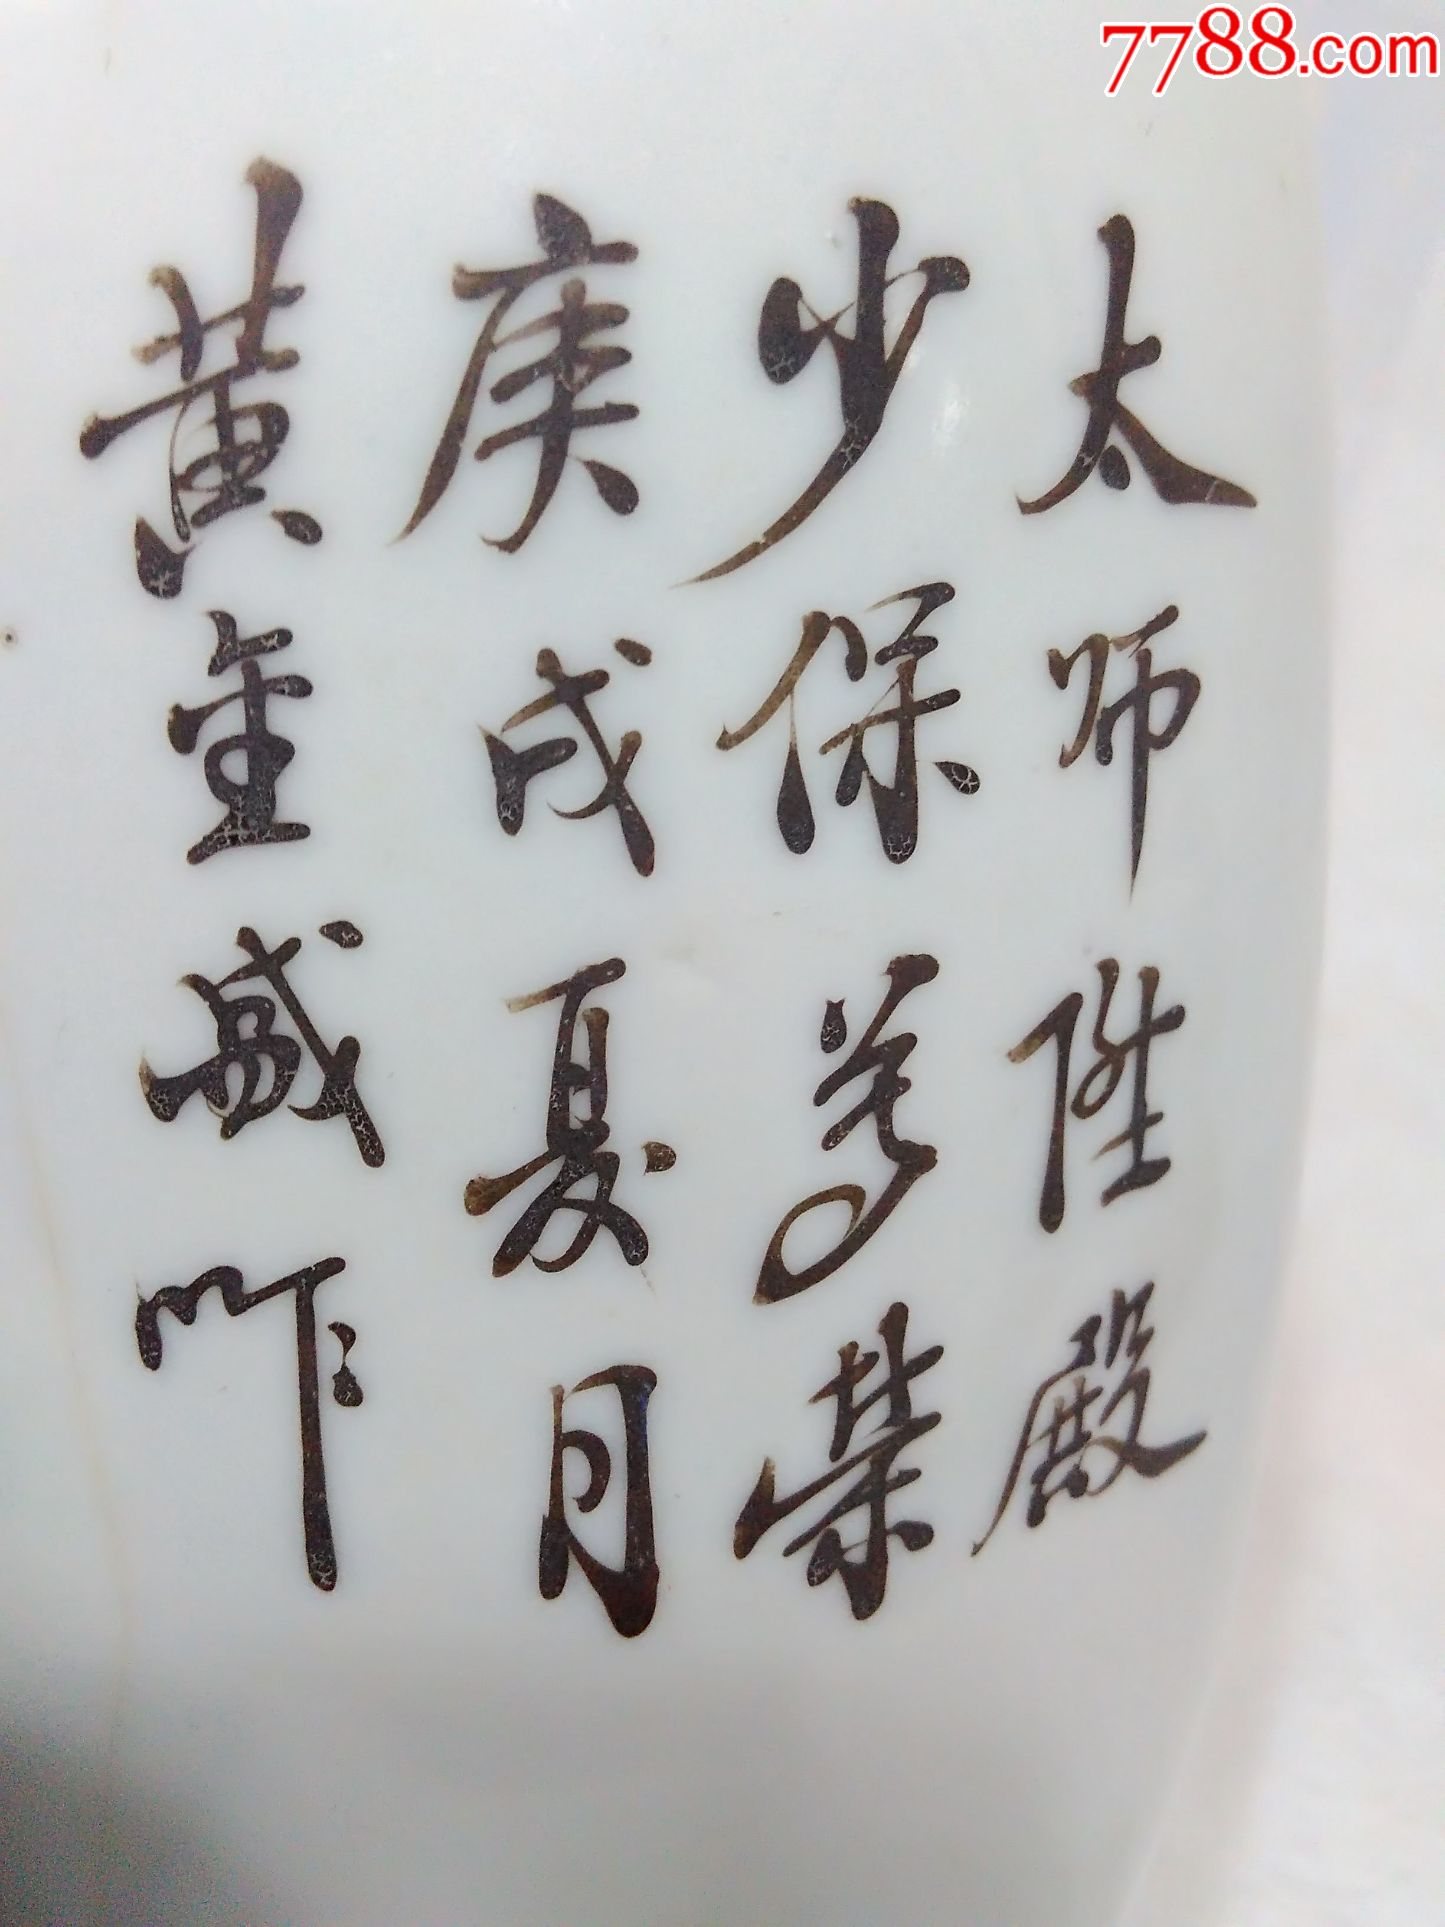 7788.com
太师陞殿
少保荣
庚戌夏月
黄金盛作